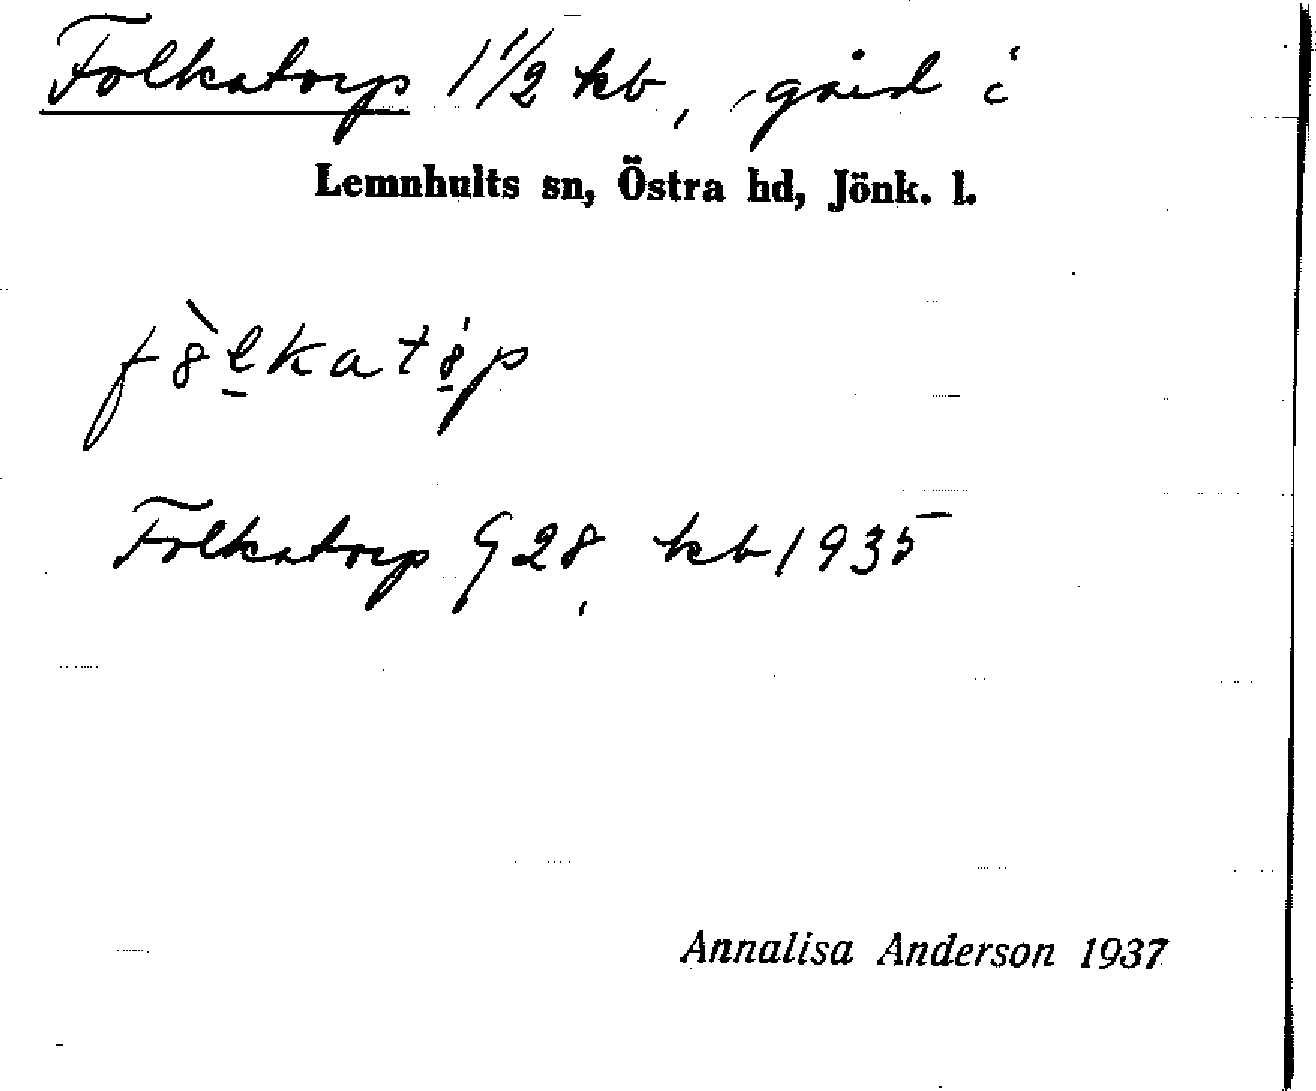 Folkatorp 1 1/2 kb, gård i
Lemnhults sn, Östra hd, Jönk. l.
fòlkató̱p
Folkatorp G 28, kb 1935
Annalisa Anderson 1937